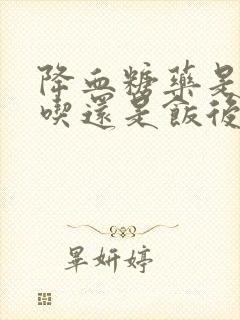 降血糖藥是
喫還是飯後
畢妍婷